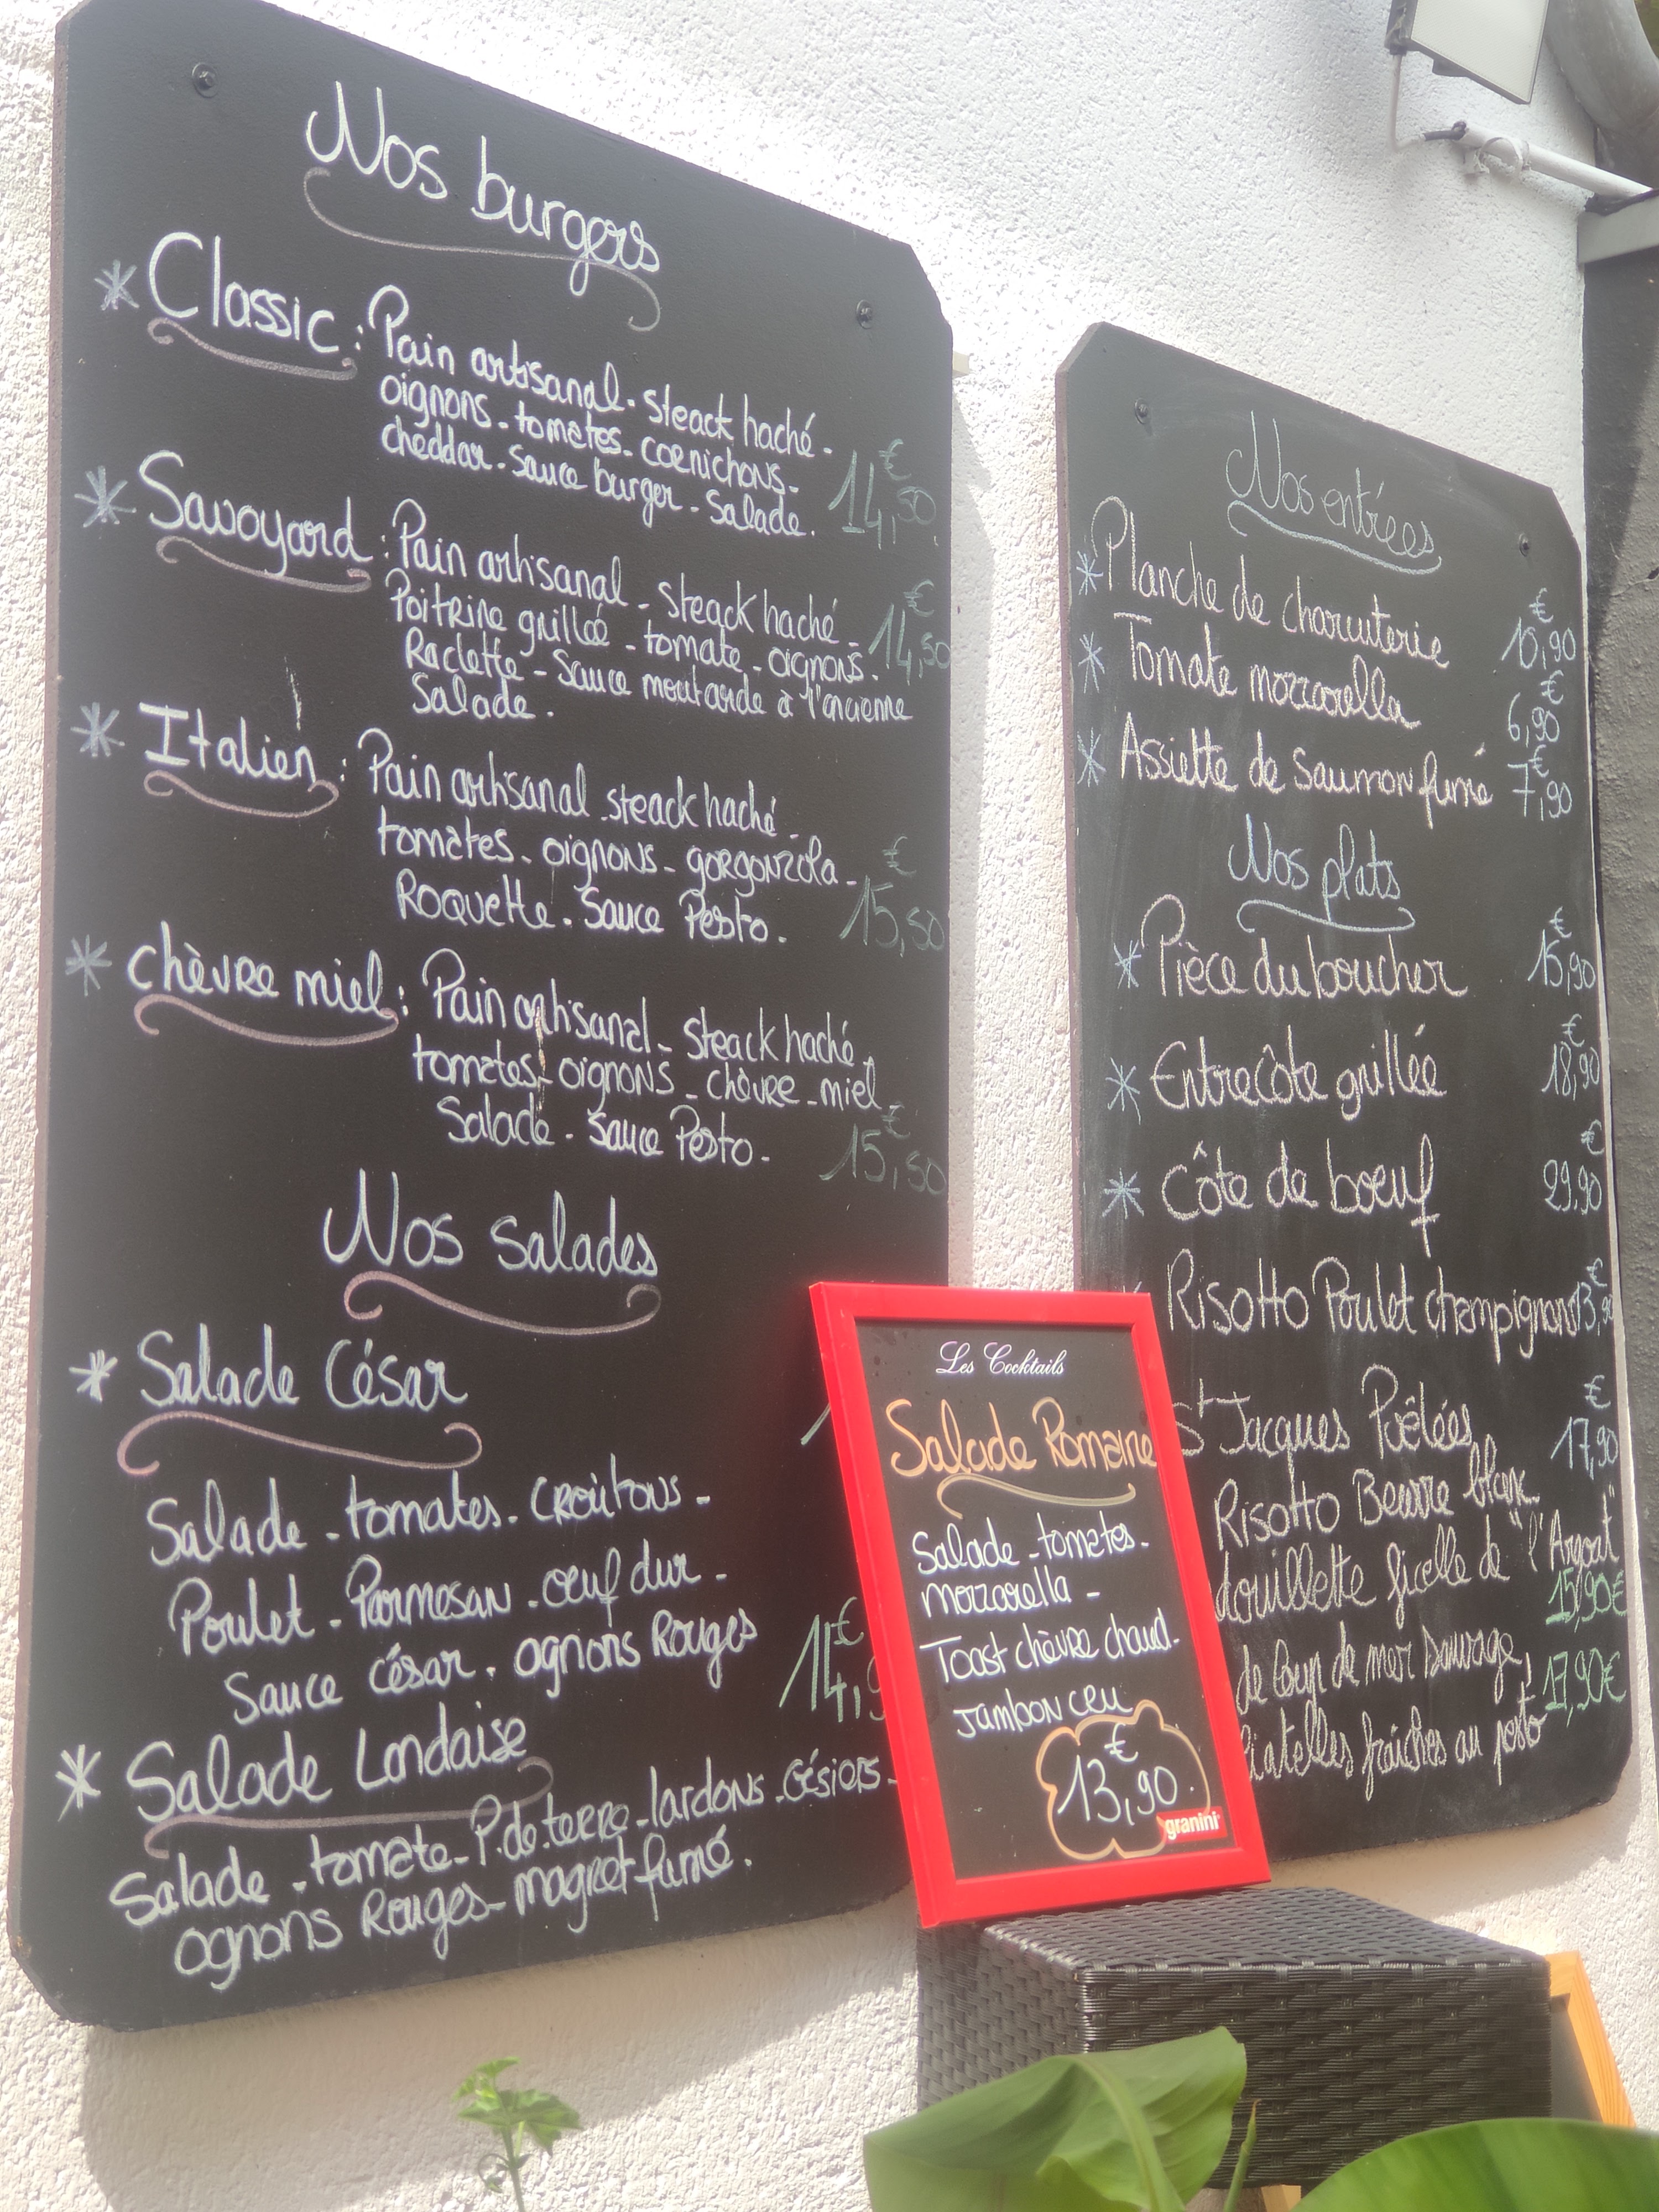 Nos burgers
* Classic : Pain artisanal - steack haché -
oignons - tomates - cornichons -
cheddar - sauce burger - salade.
14,50 €
* Savoyard : Pain artisanal - steack haché -
Poitrine grillée - tomate - oignons.
Raclette - Sauce moutarde à l'ancienne
Salade.
14,50 €
* Italien : Pain artisanal - steack haché -
tomates - oignons - gorgonzola -
Roquette - Sauce Pesto.
15,50 €
* chèvre miel : Pain artisanal - steack haché -
tomates - oignons - chèvre - miel
Salade - Sauce Pesto -
15,50 €
Nos salades
* Salade César
Salade - tomates - croûtons -
Poulet - Parmesan - oeuf dur -
Sauce césar - ognons Rouges
14,9
* Salade Landaise
Salade - tomate - P. de terre - lardons - Gésiers -
ognons Rouges - magret fumé.
Les Cocktails
Salade Romaine
Salade - tomates -
mozzarella -
Toast chèvre chaud -
Jambon cru
13,90 €
granini
Nos entrées
* Planche de charcuterie 10,90 €
* Tomate mozzarella 6,90 €
* Assiette de Saumon fumé 7,90 €
Nos plats
* Pièce du boucher 15,90 €
* Entrecôte grillée 18,90 €
* Côte de boeuf 29,90 €
Risotto Poulet champignons 13,90 €
St Jacques Poêlées 17,90 €
Risotto Beurre blanc
ficelle de "l'Argoat"
15,90€
de loup de mer sauvage,
17,90€
fraîches au pesto